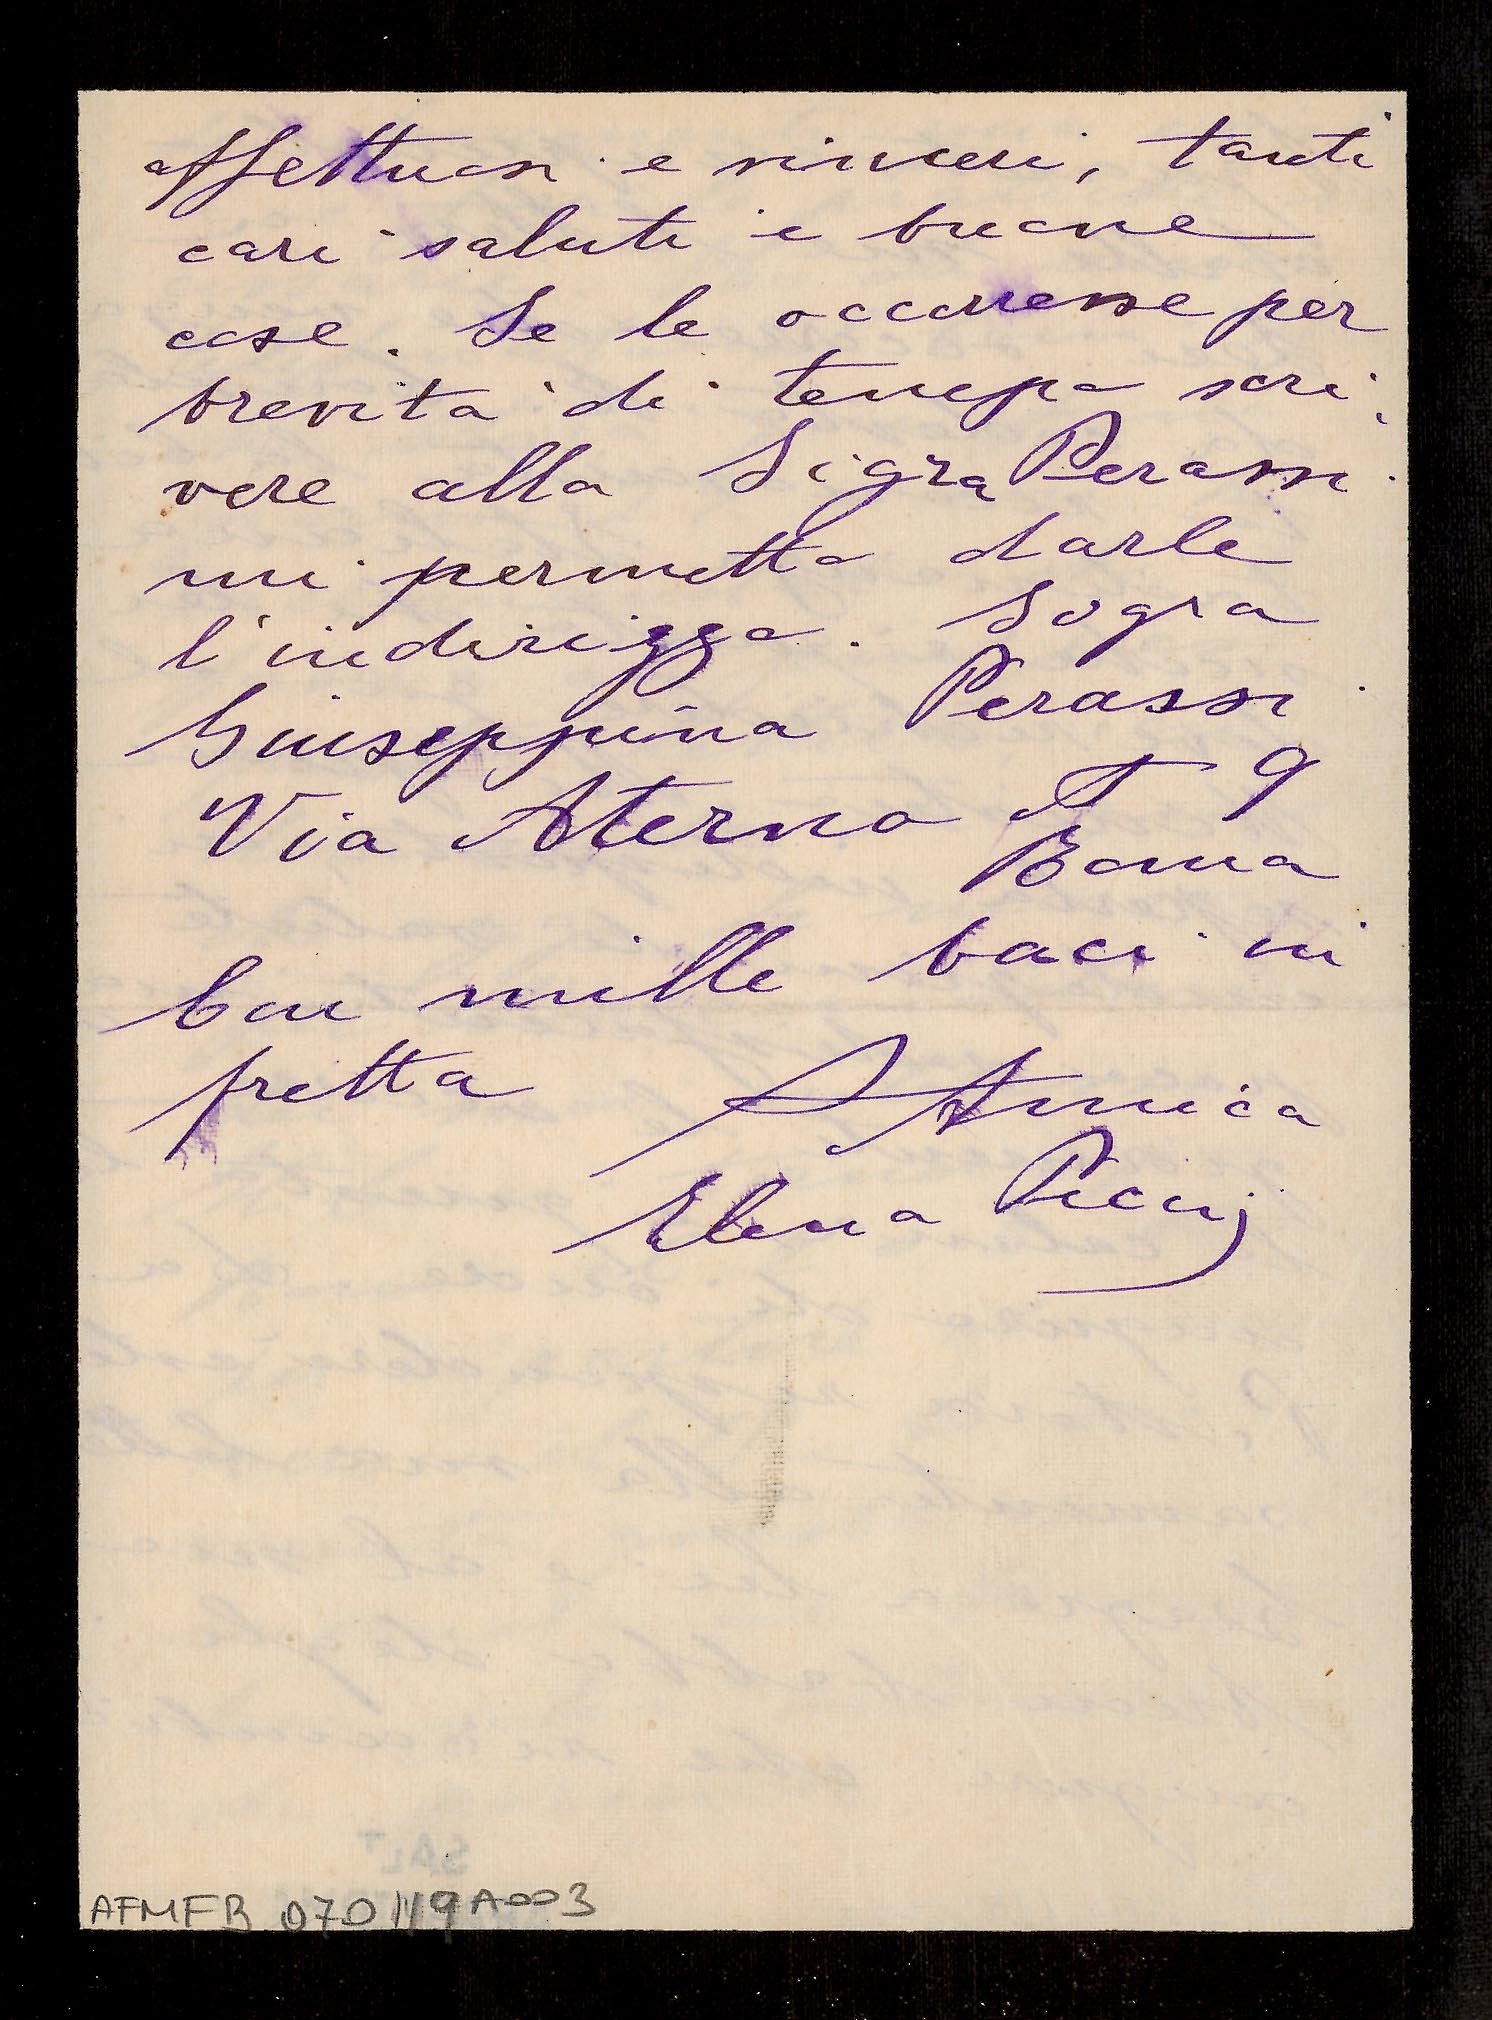 affettuosi e sinceri, tanti
cari saluti e buone
cose. Se le occorresse per
brevità di tempo scri-
vere alla Sigra Perassi
mi permetto darle
l'indirizzo. Sogra
Giuseppina Perassi
Via Aterno N 9
Roma
Con mille baci in
fretta
Amica
Elena Piccij
AFMFB 070119A003